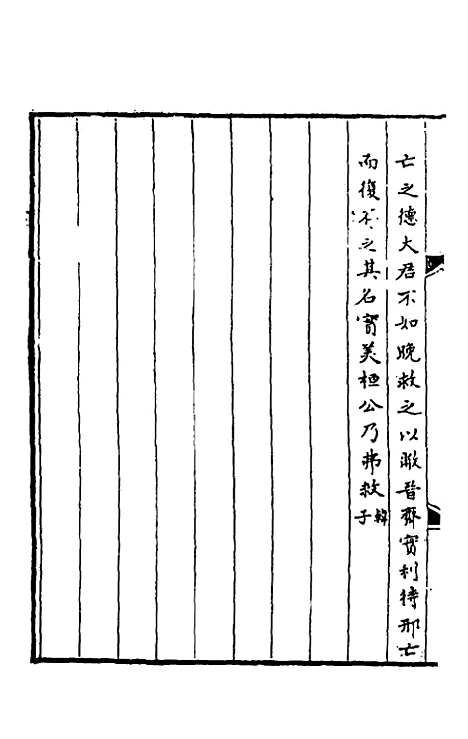 亡之德大君不如晚救之以敝晉齊實利待邢亡
而復存之其名實美桓公乃弗救韓子